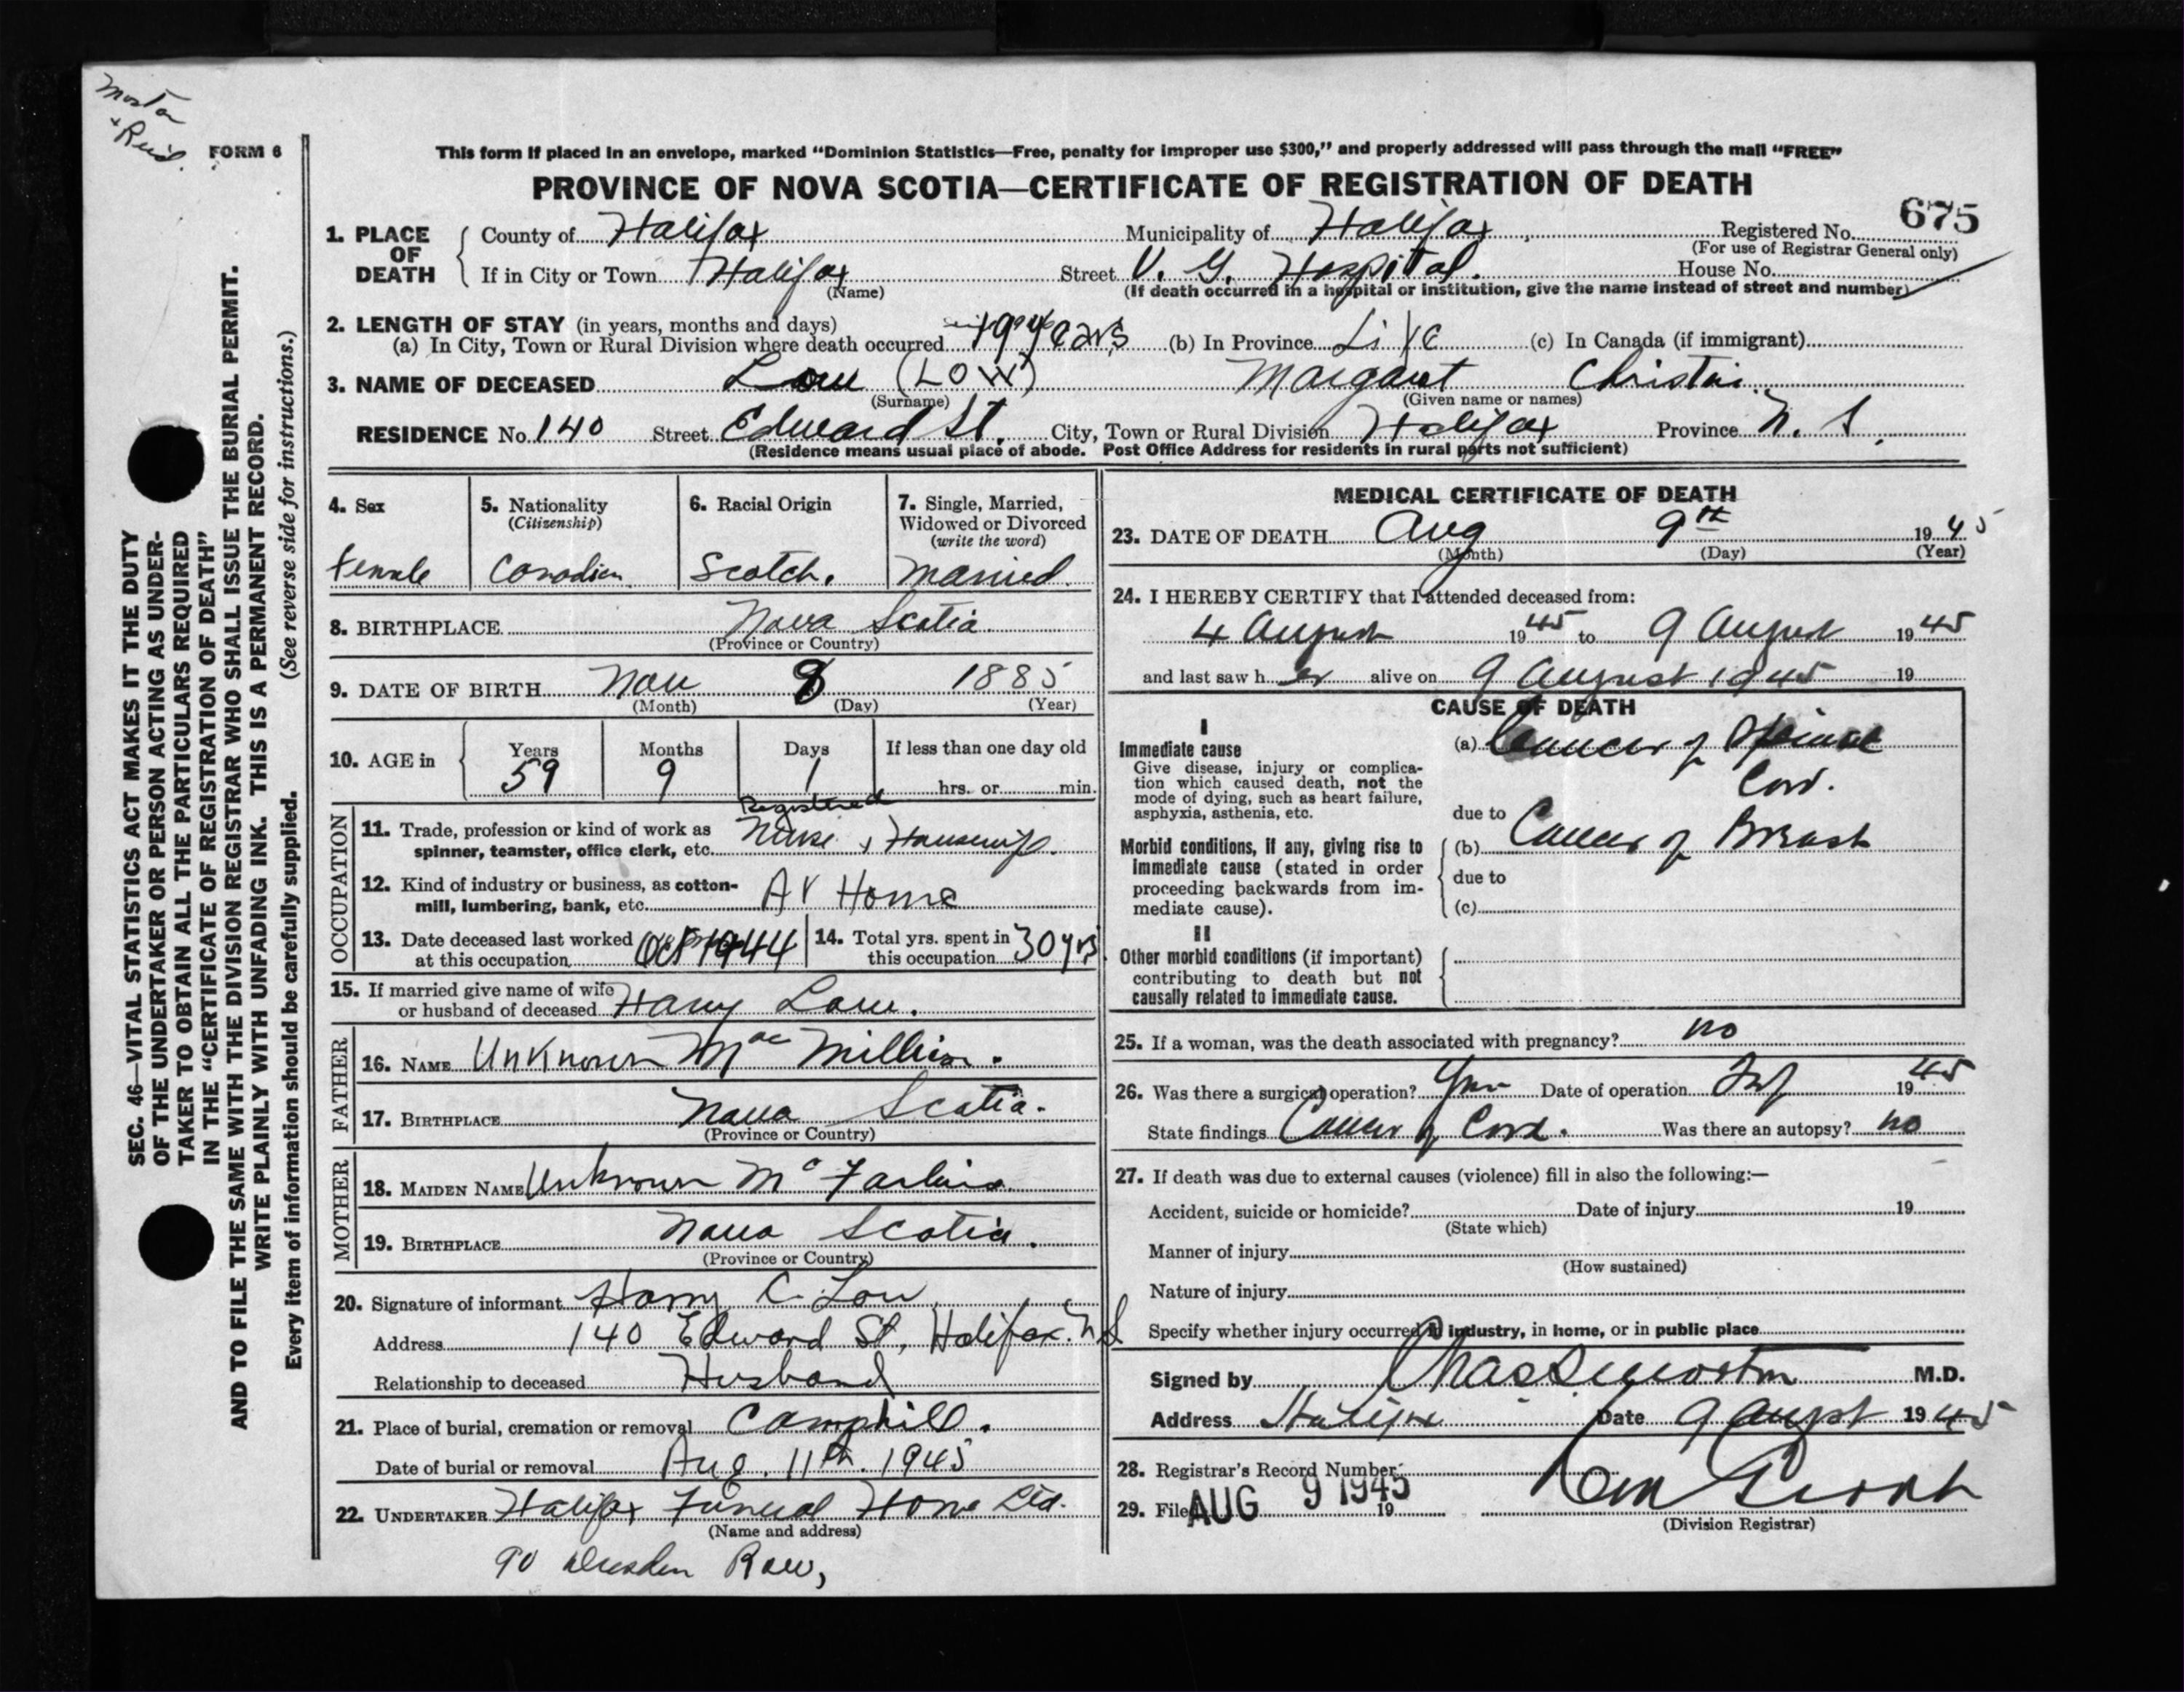 Morton
+ Reid.
FORM 6
This form if placed in an envelope, marked “Dominion Statistics—Free, penalty for improper use $300,” and properly addressed will pass through the mail “FREE”
PROVINCE OF NOVA SCOTIA—CERTIFICATE OF REGISTRATION OF DEATH
675
1. PLACE OF DEATH County of Halifax Municipality of Halifax Registered No.
(For use of Registrar General only)
If in City or Town Halifax Street V. G. Hospital. House No.
(Name) (If death occurred in a hospital or institution, give the name instead of street and number)
2. LENGTH OF STAY (in years, months and days)
(a) In City, Town or Rural Division where death occurred 19 years (b) In Province Life (c) In Canada (if immigrant)
3. NAME OF DECEASED Low (LOW) Margaret Christie
(Surname) (Given name or names)
RESIDENCE No. 140 Street Edward St. City, Town or Rural Division Halifax Province N. S.
(Residence means usual place of abode. Post Office Address for residents in rural parts not sufficient)
4. Sex 5. Nationality (Citizenship) 6. Racial Origin 7. Single, Married, Widowed or Divorced (write the word)
female Canadian Scotch. Married.
8. BIRTHPLACE Nova Scotia.
(Province or Country)
9. DATE OF BIRTH Nov 8 1885
(Month) (Day) (Year)
10. AGE in Years Months Days If less than one day old
59 9 1 hrs. or min.
OCCUPATION
Registered
11. Trade, profession or kind of work as spinner, teamster, office clerk, etc. Nurse, Housewife.
12. Kind of industry or business, as cotton-mill, lumbering, bank, etc. At Home
13. Date deceased last worked at this occupation Oct 1944 14. Total yrs. spent in this occupation 30 yrs.
15. If married give name of wife or husband of deceased Harry Low.
FATHER
16. NAME Unknown MacMillian.
17. BIRTHPLACE Nova Scotia.
(Province or Country)
MOTHER
18. MAIDEN NAME Unknown Mc
19. BIRTHPLACE Nova Scotia.
(Province or Country)
20. Signature of informant Harry C. Low
Address 140 Edward St, Halifax. N S
Relationship to deceased Husband
21. Place of burial, cremation or removal Camphill.
Date of burial or removal Aug. 11th. 1945
22. UNDERTAKER Halifax Funeral Home Ltd.
(Name and address)
90 Dresden Row,
MEDICAL CERTIFICATE OF DEATH
23. DATE OF DEATH Aug 9th 1945
(Month) (Day) (Year)
24. I HEREBY CERTIFY that I attended deceased from:
4 August 1945 to 9 August 1945
and last saw her alive on 9 August 1945 19
CAUSE OF DEATH
I
Immediate cause (a) Cancer of Spinal
Give disease, injury or complication which caused death, not the mode of dying, such as heart failure, asphyxia, asthenia, etc. Cord.
due to
Morbid conditions, if any, giving rise to immediate cause (stated in order proceeding backwards from immediate cause). (b) Cancer of Breast
due to
(c)
II
Other morbid conditions (if important) contributing to death but not causally related to immediate cause.
25. If a woman, was the death associated with pregnancy? no
26. Was there a surgical operation? Yes Date of operation 1945
State findings Cancer of Cord. Was there an autopsy? no
27. If death was due to external causes (violence) fill in also the following:—
Accident, suicide or homicide? Date of injury 19
(State which)
Manner of injury
(How sustained)
Nature of injury
Specify whether injury occurred in industry, in home, or in public place
Signed by Chas S Morton M.D.
Address Halifax Date 9 August 1945
28. Registrar's Record Number
29. Filed AUG 9 1945 19
(Division Registrar)
SEC. 46—VITAL STATISTICS ACT MAKES IT THE DUTY
OF THE UNDERTAKER OR PERSON ACTING AS UNDER-
TAKER TO OBTAIN ALL THE PARTICULARS REQUIRED
IN THE “CERTIFICATE OF REGISTRATION OF DEATH”
AND TO FILE THE SAME WITH THE DIVISION REGISTRAR WHO SHALL ISSUE THE BURIAL PERMIT.
WRITE PLAINLY WITH UNFADING INK. THIS IS A PERMANENT RECORD.
Every item of information should be carefully supplied. (See reverse side for instructions.)